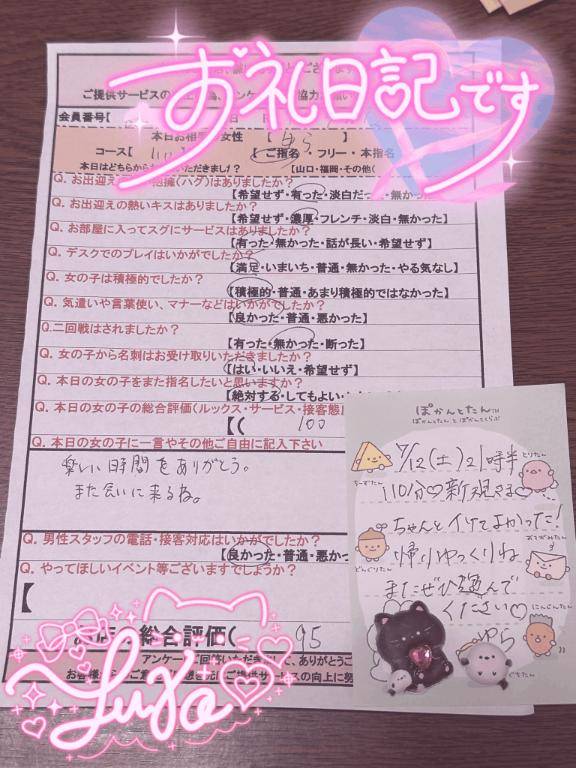 お礼日記です
ご提供サービスの
会員番号【
本日お相
女性【ゆら】
コース【110
【ご指名・フリー・本指名
本日はどちらか
いただきましたか?
【山口・福岡・その他(
Q. お出迎え
抱擁(ハグ)はありましたか?
【希望せず・有った・淡白だった・無かった】
Q. お出迎えの熱いキスはありましたか?
【希望せず・濃厚・フレンチ・淡白・無かった】
Q. お部屋に入ってスグにサービスはありましたか?
【有った・無かった・話が長い・希望せず】
Q. デスクでのプレイはいかがでしたか?
【満足・いまいち・普通・無かった・やる気なし】
Q. 女の子は積極的でしたか?
【積極的・普通・あまり積極的ではなかった】
Q. 気遣いや言葉使い、マナーなどはいかがでしたか?
【良かった・普通・悪かった】
Q.二回戦はされましたか?
【有った・無かった・断った】
Q. 女の子から名刺はお受け取りいただきましたか?
【はい・いいえ・希望せず】
Q. 本日の女の子をまた指名したいと思いますか?
【絶対する・してもよい・
Q. 本日の女の子の総合評価(ルックス・サービス・接客態
【( 100
Q. 本日の女の子に一言やその他ご自由に記入下さい
楽しい時間をありがとう。
また会いに来るね。
Q. 男性スタッフの電話・接客対応はいかがでしたか?
【良かった・普通・悪かっ
Q. やってほしいイベント等ございますでしょうか?
【
総合評価( 95
アンケートご回答いただきまして、ありがとうご
お客様から
サービスの向上に努
Yura
ぽかんとたん
ぽかんとたん と ぽかんとくらぶ
7/12(土)21時半
とりたん
ちーずたん
110分♡新規さま♡
ちゃんとイけてよかったー!
おてがみたん
どんぐりたん
帰りゆっくりね
またぜひ遊んで
ください♡
にんじんたん
ゆら